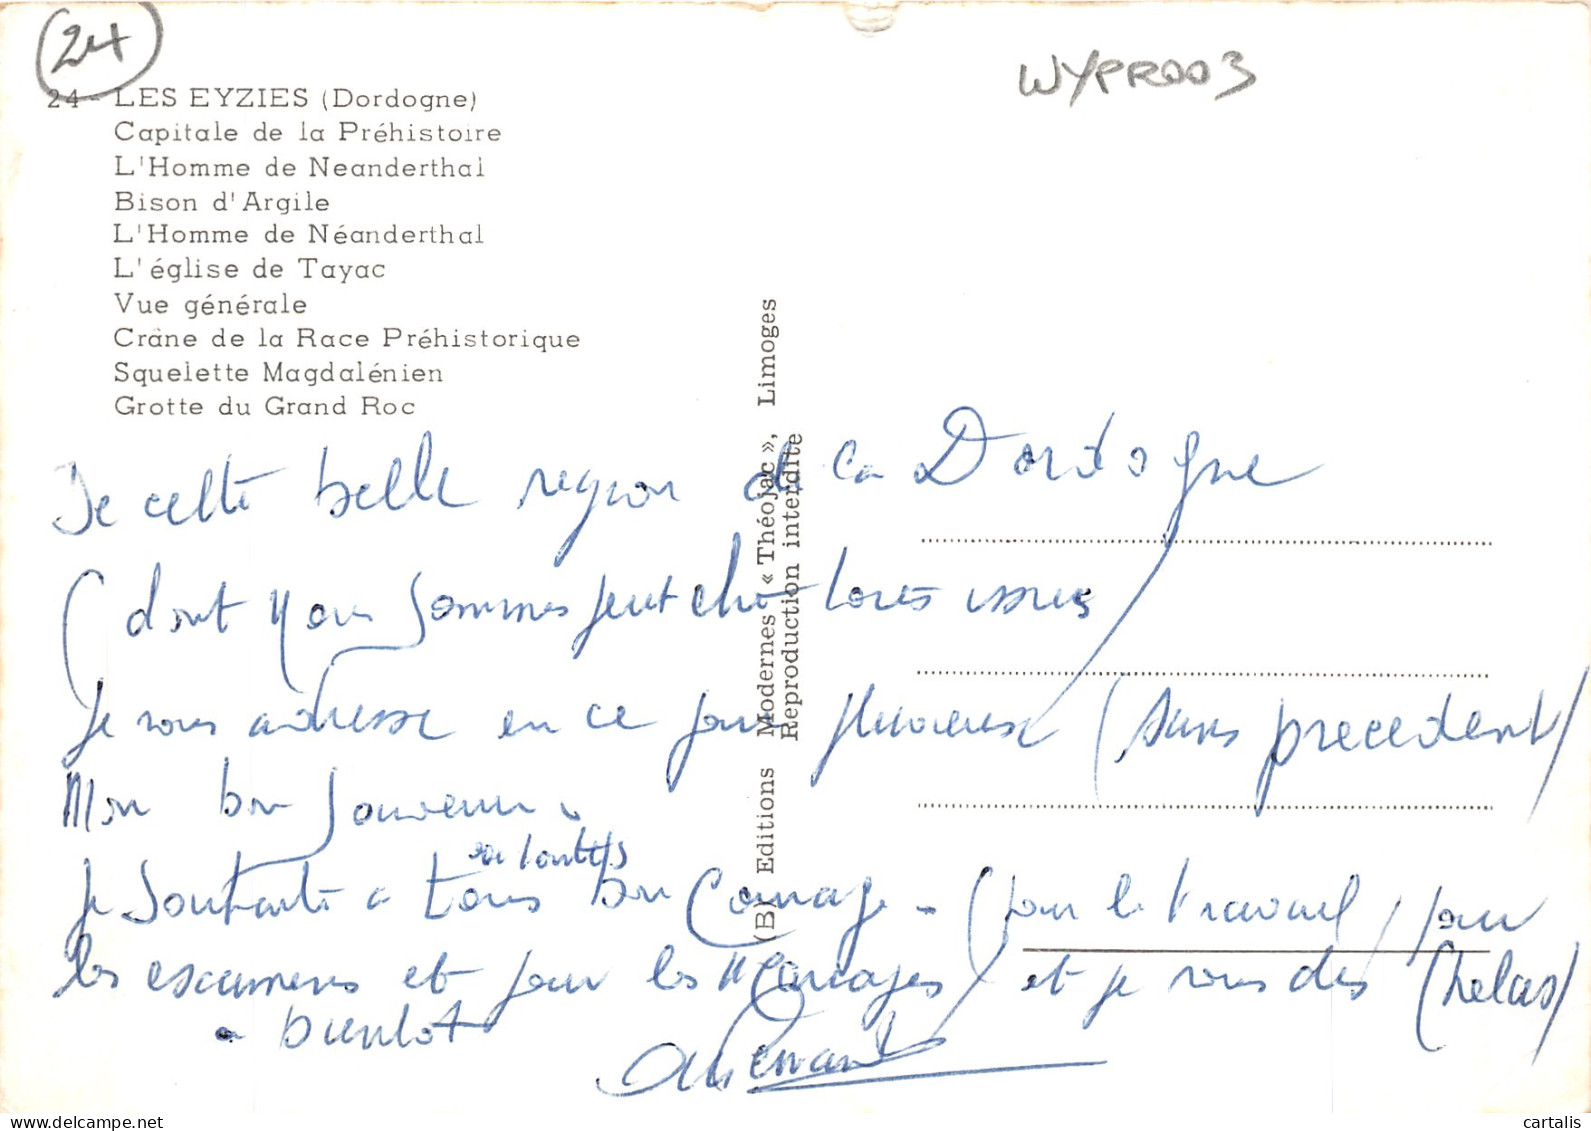 24
WYPR003
24 - LES EYZIES (Dordogne)
Capitale de la Préhistoire
L'Homme de Neanderthal
Bison d'Argile
L'Homme de Néanderthal
L'église de Tayac
Vue générale
Crâne de la Race Préhistorique
Squelette Magdalénien
Grotte du Grand Roc
(B) Editions Modernes « Théojac », Limoges
Reproduction interdite
De cette belle region de la Dordogne
(dont nous sommes peut etre tous issus)
Je vous adresse en ce jour pluvieux (sans precedent)
Mon bon souvenir.
Je souhaite a tous et toutes bon courage - (pour le travail, pour
les examens et pour les mariages) et je vous dis (helas)
a bientot
cartalis